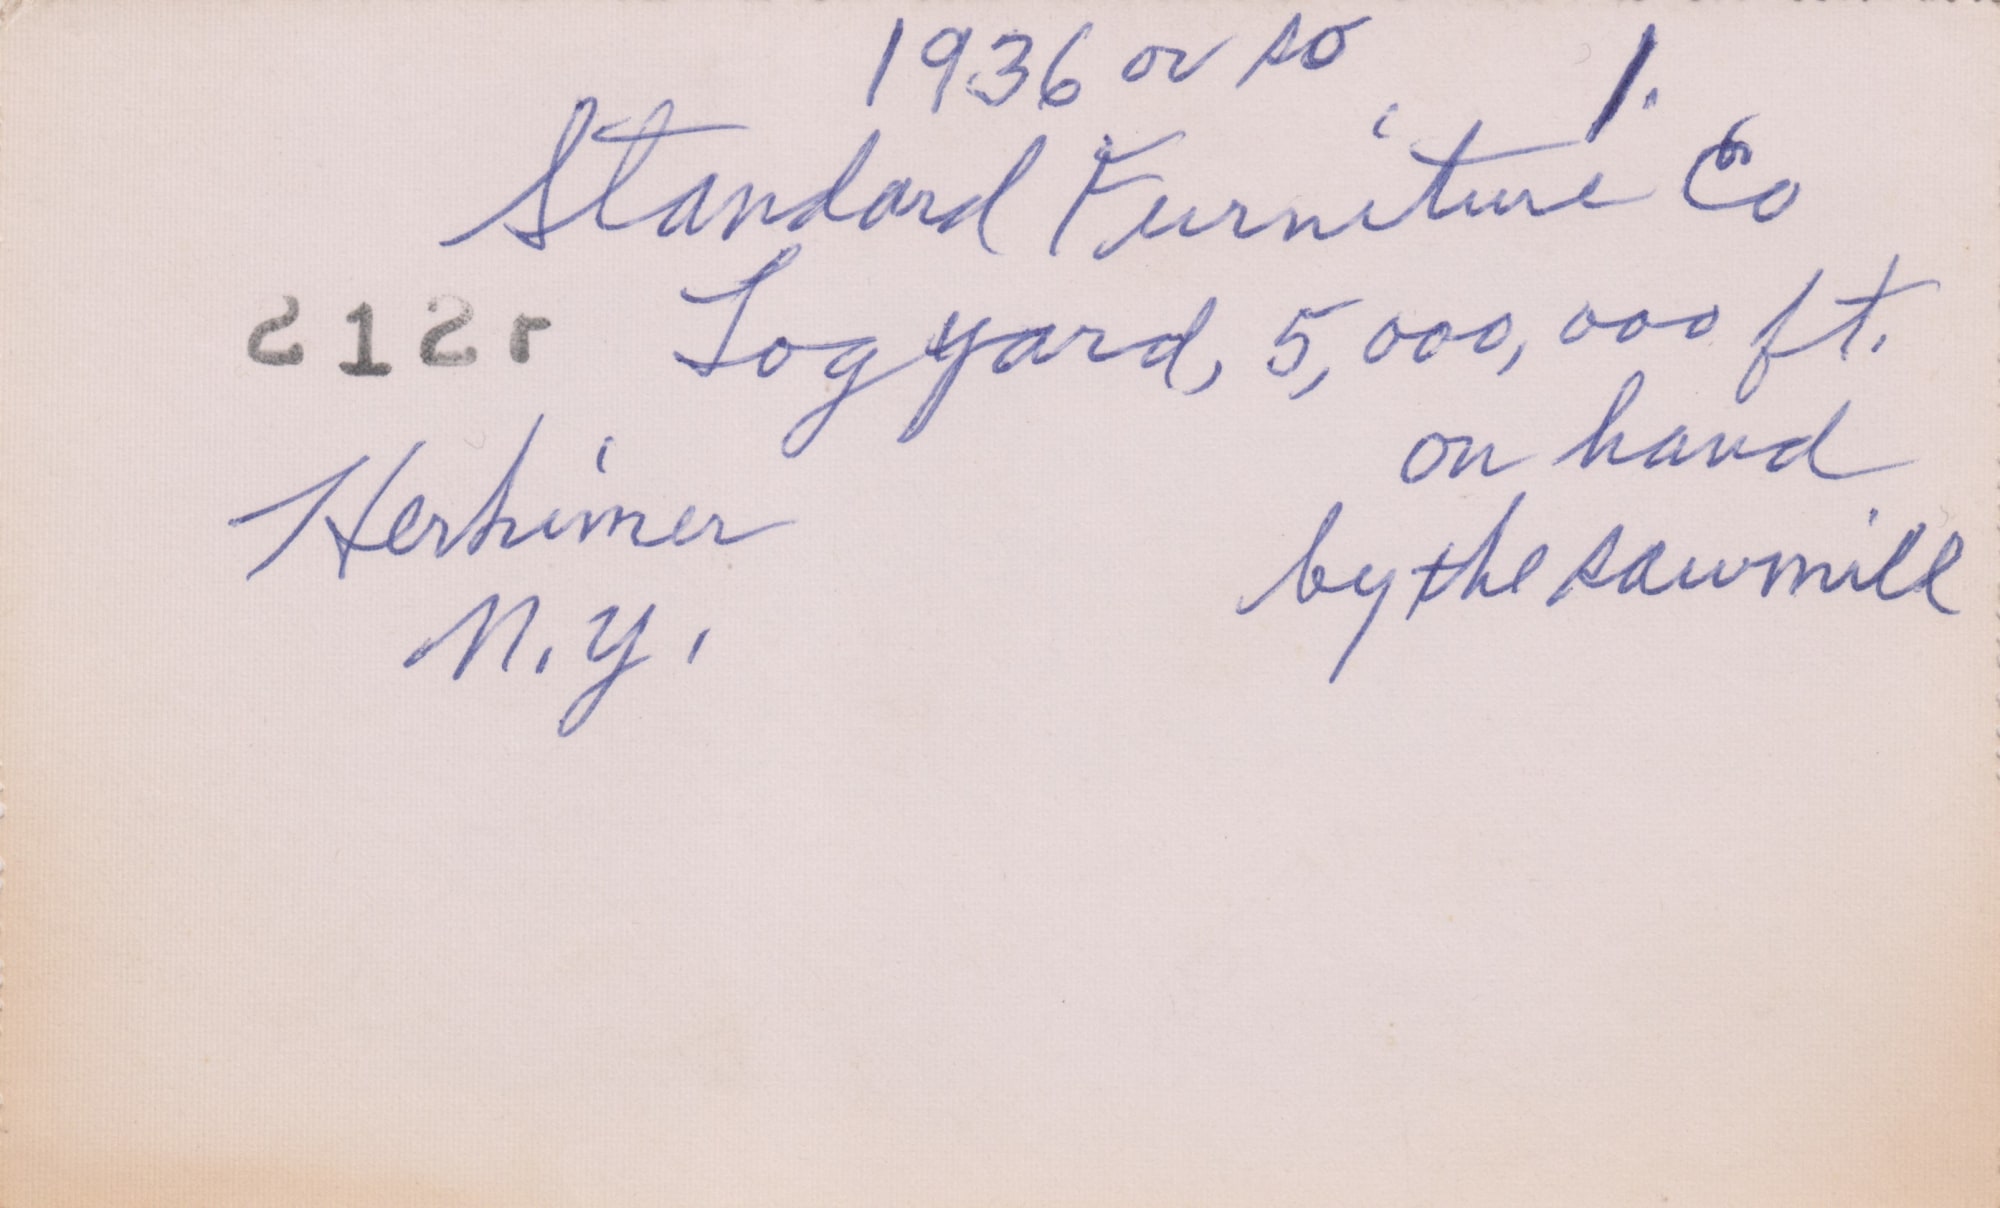 1936 or so 1.
Standard Furniture Co
Log yard, 5,000,000 ft.
on hand
by the sawmill
Herkimer
N.Y.